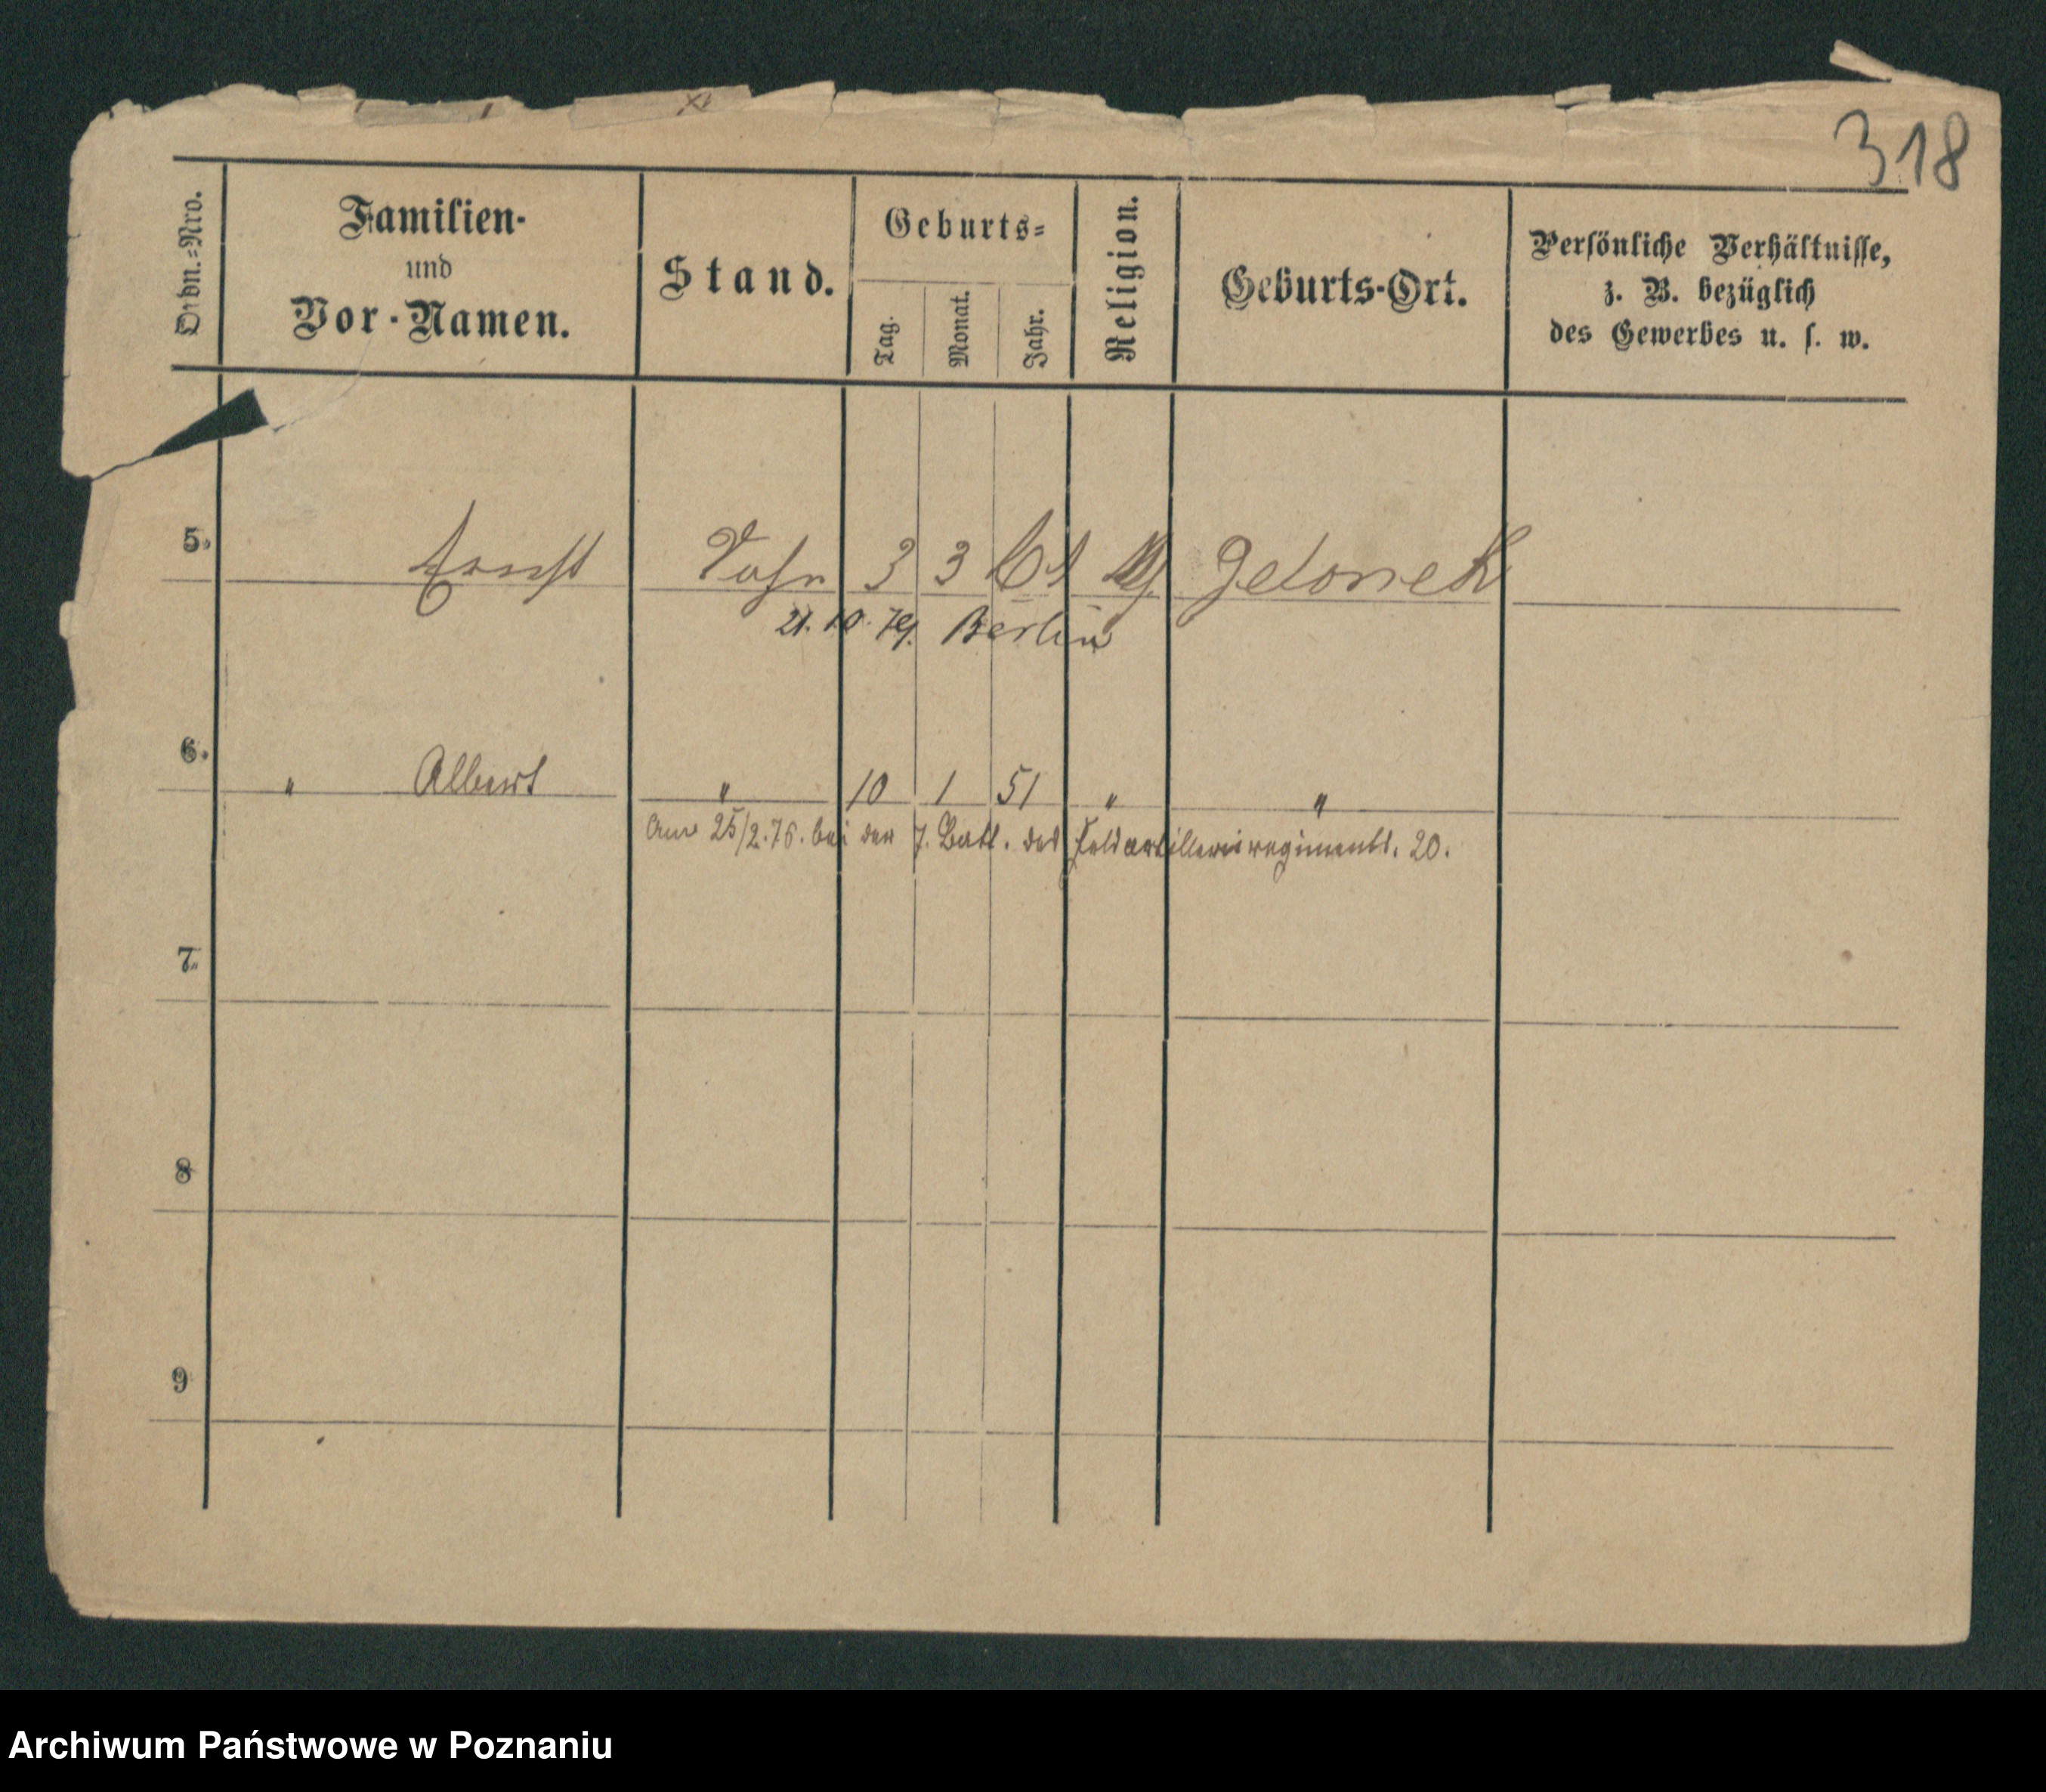 318
Ordn.-Nro.
Familien-
und
Vor-Namen.
Stand.
Geburts-
Tag.
Monat.
Jahr.
Religion.
Geburts-Ort.
Persönliche Verhältnisse,
z. B. bezüglich
des Gewerbes u. s. w.
5. Ernst Sohn 3 3 61
21. 10. 79. Berlin
6. " Albert " 10 1 51 " "
Am 25/2.76. bei der 7. Batt. des Feldartillerieregiments. 20.
7.
8
9
Archiwum Państwowe w Poznaniu